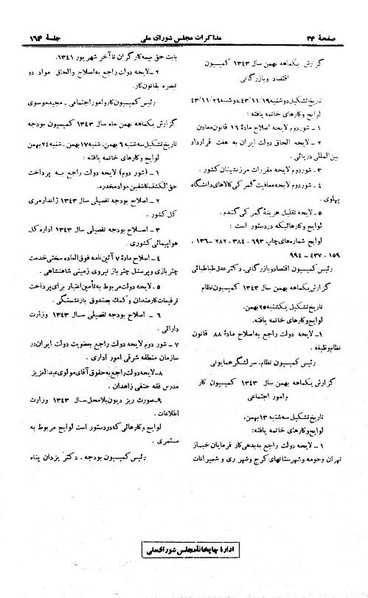 صفحهٔ ۲۴
مذاکرات مجلس شورای ملی
جلسهٔ ۱۶۴
گزارش یکماهه بهمن سال ۱۳۴۳ کمیسیون
اقتصاد و بازرگانی
تاریخ تشکیل دوشنبه ۴۳/۱۱/۱۹ و دوشنبه ۴۳/۱۱/۲۶
لوایح و کارهای خاتمه یافته :
۱ – شور دوم لایحه اصلاح مادهٔ ۱۶ قانون معاون
۲ – لایحه الحاق دولت ایران به هفت قرارداد
بین‌المللی دریائی .
۳ – شور دوم لایحه مقررات مرزنشینان کشور .
۴ – شور دوم لایحه معافیت گمرکی کالاهای دانشگاه
پهلوی .
۵ – لایحه تقلیل هزینهٔ گمرکی گندم .
لوایح و کارهائیکه در دستور است :
لوایح شماره‌های چاپ ۶۹۳ – ۳۸۴ – ۲۸۲ – ۱۳۶ –
۱۵۹ – ۴۳۷ – ۹۹۴
رئیس کمیسیون اقتصاد و بازرگانی . دکتر عدل طباطبائی
گزارش یکماهه بهمن سال ۱۳۴۳ کمیسیون نظام
تاریخ تشکیل یکشنبه ۲۵ بهمن .
لوایح و کارهای خاتمه یافته :
۱ – لایحه دولت راجع به اصلاح مادهٔ ۸۸ قانون
نظام وظیفه .
رئیس کمیسیون نظام . سرلشگر همایونی
گزارش یکماهه بهمن سال ۱۳۴۳ کمیسیون کار
و امور اجتماعی
تاریخ تشکیل سه‌شنبه ۱۳ بهمن .
لوایح و کارهای خاتمه یافته :
۱ – لایحه دولت راجع به بدهی کارفرمایان خباز
تهران و حومه و شهرستانهای کرج و شهر ری و شمیرانات
بابت حق بیمه کارگران تا آخر شهریور ۱۳۴۱ .
۲ – لایحه دولت راجع به اصلاح و الحاق مواد دو
تبصره بقانون کار .
رئیس کمیسیون کار و امور اجتماعی . مجید موسوی
گزارش یکماهه بهمن ماه سال ۱۳۴۳ کمیسیون بودجه
تاریخ تشکیل سه‌شنبه ۶ بهمن . شنبه ۱۷ بهمن . شنبه ۲۴ بهمن
لوایح و کارهای خاتمه یافته :
۱ – (شور دوم) لایحه دولت راجع به پرداخت
حق‌الکشف کاشفین مواد مخدره .
۲ – اصلاح بودجه تفصیلی سال ۱۳۴۳ ژاندارمری
کل کشور .
۳ – اصلاح بودجه تفصیلی سال ۱۳۴۳ اداره کل
هواپیمائی کشوری .
۴ – اصلاح مادهٔ ۷ آئین‌نامه فوق‌العاده سختی خدمت
چتربازی و پرسنل چترباز نیروی زمینی شاهنشاهی .
۵ – لایحه دولت مربوط به تأمین اعتبار برای پرداخت
ترفیعات کارمندان و کمک بصندوق بازنشستگی .
۶ – اصلاح بودجه تفصیلی سال ۱۳۴۳ وزارت
دارائی .
۷ – شور دوم لایحه دولت راجع بعضویت دولت ایران در
سازمان منطقه شرقی امور اداری .
۸ – لایحه دولت راجع به حقوق آقای مولوی عبدالعزیز
مدرس فقه حنفی زاهدان .
۹ – صورت ریز دیون بلامحل سال ۱۳۴۳ وزارت
اطلاعات .
لوایح و کارهائی که در دستور است لوایح مربوط به
مستمری .
رئیس کمیسیون بودجه . دکتر یزدان پناه
ادارهٔ چاپخانهٔ مجلس شورای ملی